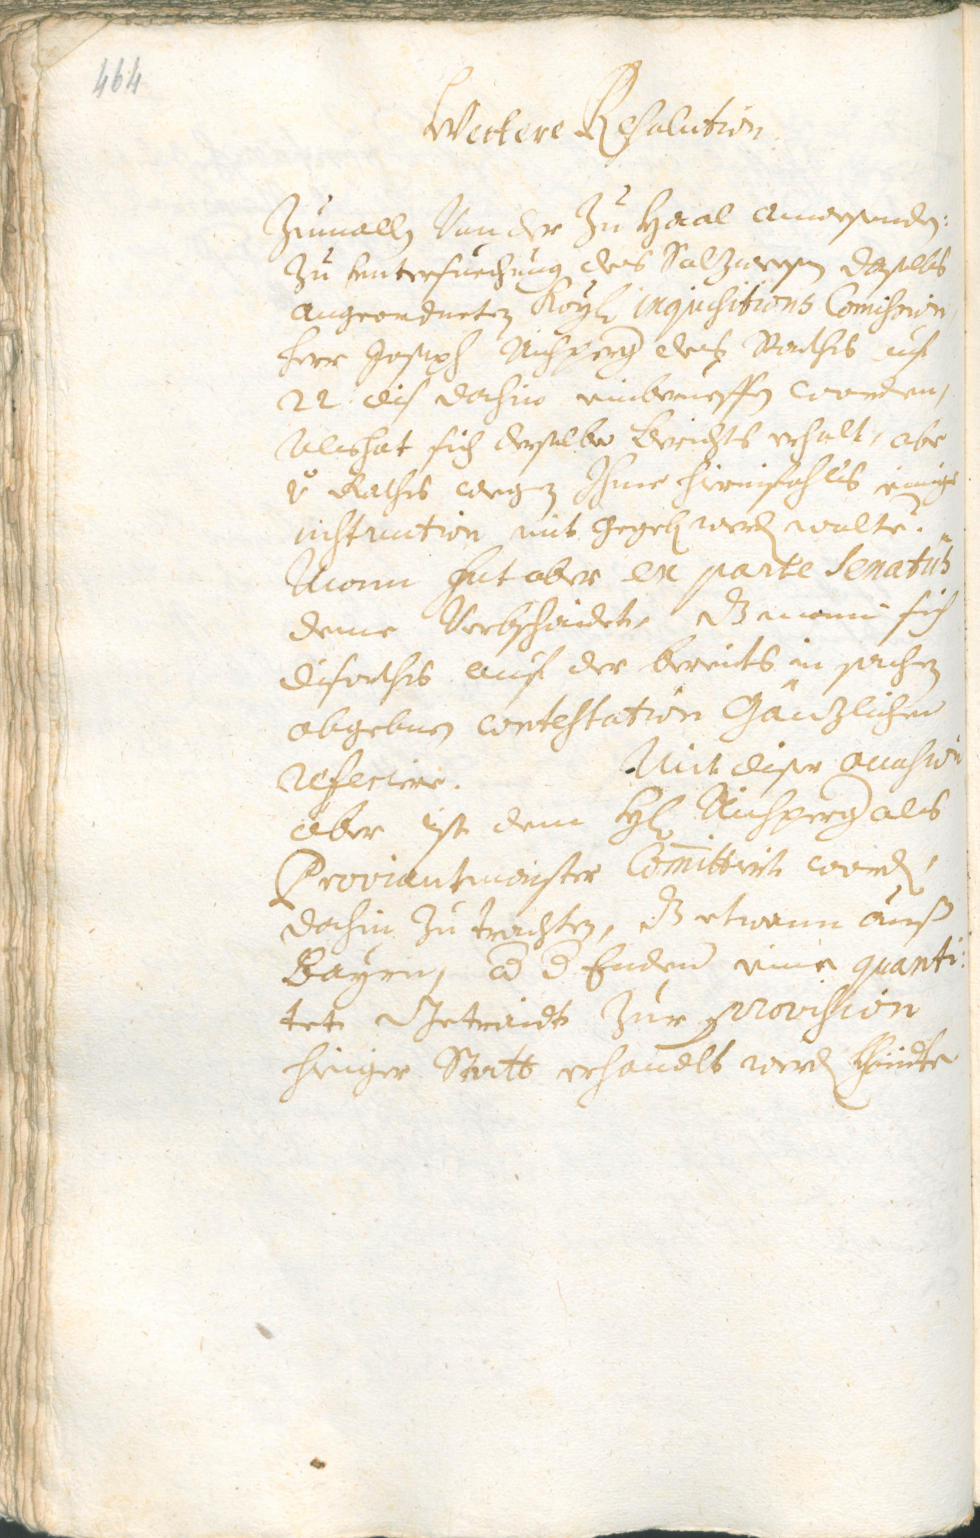 464
Weitere Resolution.
Zumalln Von der Zu Haal Anwesenden:
Zu Untersuechung des Salzwesen daselbs
angeordneten Kayl: inquisitions Comission,
Herr Joseph des Raths auf
22 diß dahin einberueffen worden,
Als hat sich derselbe Berichts erhalt, obe
v Raths wegen Ihme hierinfahls einige
instruction mit gegeben werd wolte.
Mann hat aber ex parte Senatûs
deme Verbschaidet, dz mann sich
disorths auf der bereits in sachen
abgebnen contestation Gänzlichen
referiere. Mit diser occasion
aber ist dem als
Proviantmaister Committirt word,
dahin zu trachten, dz etwann auß
Bayrn, Enden eine quanti:
tet Getraidt Zur provision
hiesiger Statt erhandlt werd khündte